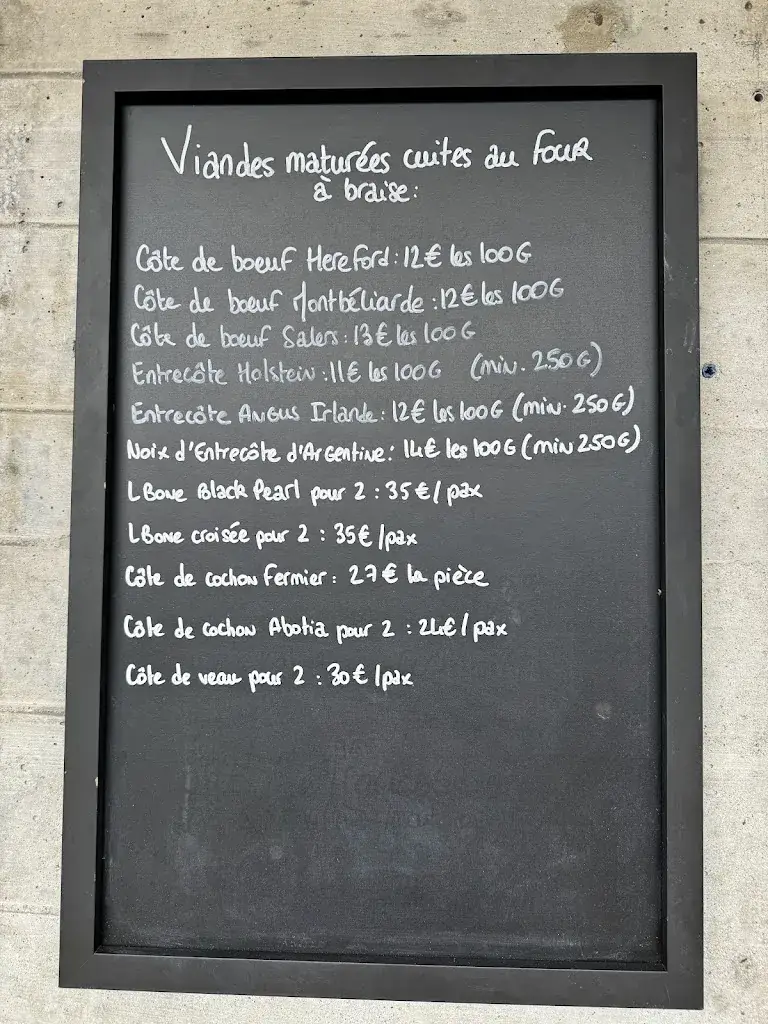 Viandes maturées cuites au four
à braise:
Côte de boeuf Hereford: 12€ les 100G
Côte de boeuf Montbéliarde: 12€ les 100G
Côte de boeuf Salers: 13€ les 100G
Entrecôte Holstein: 11€ les 100G (min. 250G)
Entrecôte Angus Irlande: 12€ les 100G (min. 250G)
Noix d'Entrecôte d'Argentine: 14€ les 100G (min 250G)
LBone Black Pearl pour 2 : 35€/pax
LBone croisée pour 2 : 35€/pax
Côte de cochon fermier: 27€ la pièce
Côte de cochon Abotia pour 2 : 24€/pax
Côte de veau pour 2 : 30€/pax